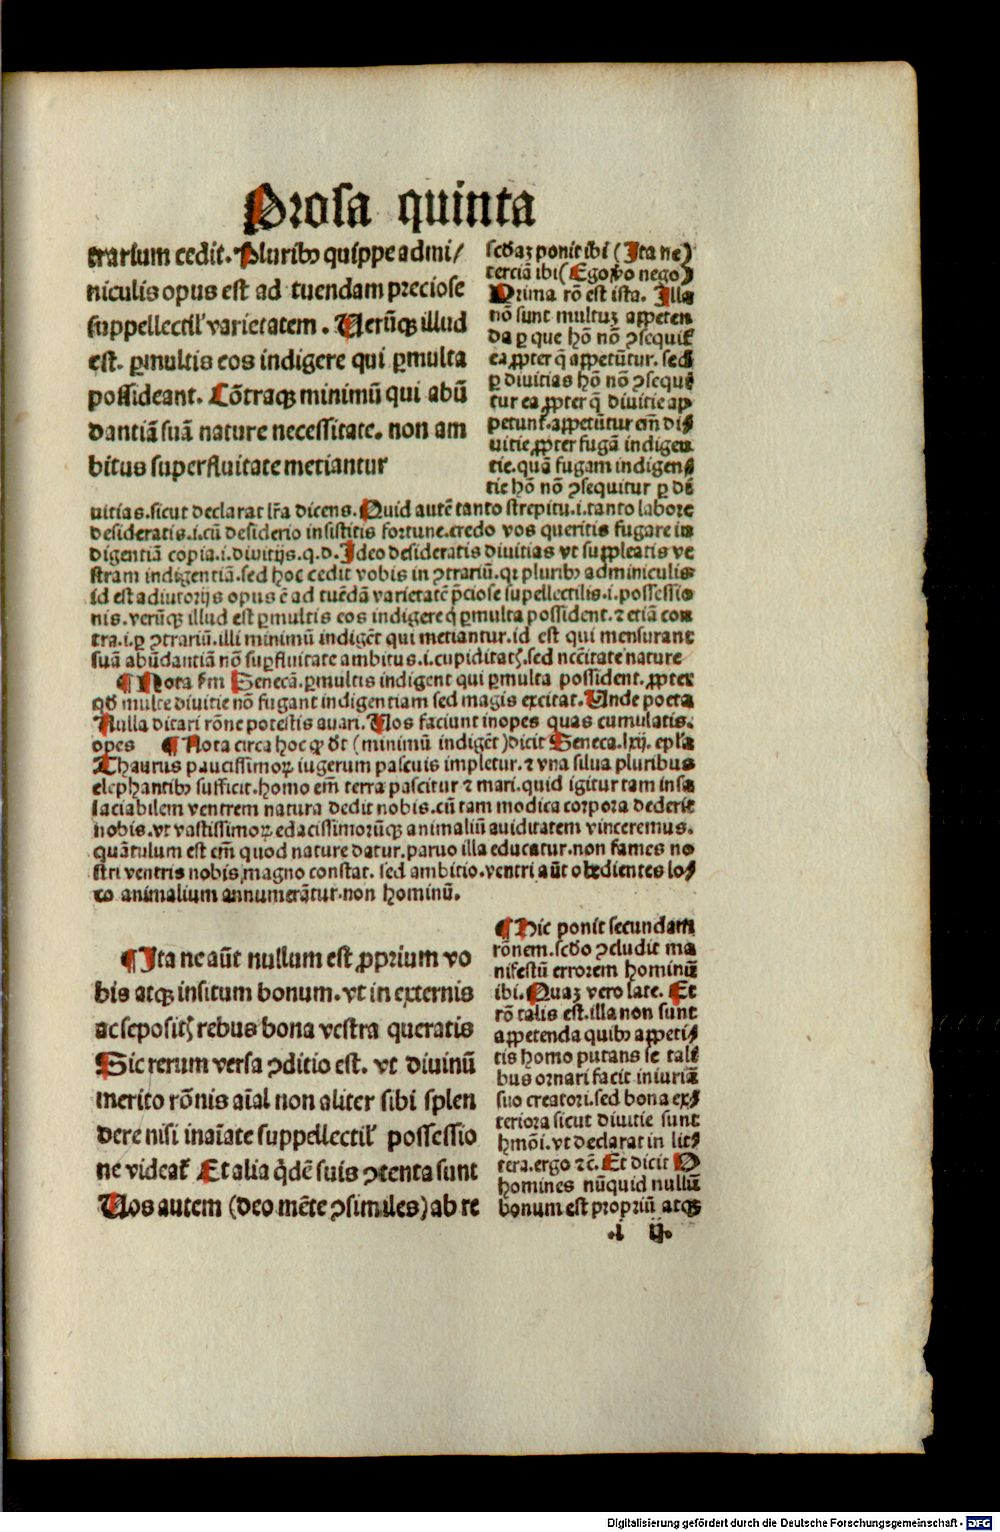 Prosa quinta
trarium cedit. Pluribꝰ quippe admi/
niculis opus est ad tuendam preciose
suppellectil' varietatem. Uerūqꝫ illud
est. ꝑmultis eos indigere qui ꝑmulta
possideant. Cōtraqꝫ minimū qui abū
dantiā suā nature necessitate. non am
bitus superfluitate metiantur
scďaꝫ ponit ibi (Ita ne)
terciā ibi (Ego ṽo nego)
Prima rō est ista. Illa
nō sunt multuꝫ appeten
da ꝑ que hō nō ꝯsequit̃
ea ꝓpter q̄ appetūtur. sed
ꝑ diuitias hō nō ꝯsequi
tur ea ꝓpter q̄ diuitie ap
petunt̃. appetūtur em̄ di/
uitie ꝓpter fugā indigen
tie. quā fugam indigen/
tie hō nō ꝯsequitur ꝑ di
uitias. sicut declarat lr̄a dicens. Quid autē tanto strepitu .i. tanto labore
desideratis .i. cū desiderio insistitis fortune. credo vos queritis fugare in
digentiā copia .i. diuitijs. q.d. Ideo desideratis diuitias vt suppleatis ve
stram indigentiā. sed hoc cedit vobis in ꝯtrariū. qꝛ pluribꝰ adminiculis
id est adiutorijs opus ē ad tuēdā varietatē p̄ciose supellectilis .i. possessio
nis. verūqꝫ illud est ꝑmultis eos indigere q̇ ꝑmulta possident. ⁊ etiā con
tra .i. ꝑ ꝯtrariū. illi minimū indigēt qui metiantur. id est qui mensurant
suā abūdantiā nō suꝑfluitate ambitus .i. cupiditatꝭ. sed nccītate nature
¶ Nota ẜm Senecā. ꝑmultis indigent qui ꝑmulta possident. ꝓpter
qď multe diuitie nō fugant indigentiam sed magis excitat. Unde poeta
Nulla ditari rōne potestis auari. Uos faciunt inopes quas cumulatis.
opes ¶ Nota circa hoc ꝙ ďt (minimū indigēt) dicit Seneca. lxij. epl'a
Thaurus paucissimoꝝ iugerum pascuis impletur. ⁊ vna silua pluribus
elephantibꝰ sufficit. homo em̄ terra pascitur ⁊ mari. quid igitur tam insa
saciabilem ventrem natura dedit nobis. cū tam modica corpora dederit
nobis. vt vastissimoꝝ edacissimorūqꝫ animaliū auiditatem vinceremus.
quātulum est em̄ quod nature datur. paruo illa educatur. non fames no
stri ventris nobis magno constat. sed ambitio. ventri aūt obedientes lo/
co animalium annumerātur. non hominū.
¶ Ita ne aūt nullum est ꝓprium vo
bis atqꝫ insitum bonum. vt in externis
ac sepositꝭ rebus bona vestra queratis
Sic rerum versa ꝯditio est. vt diuinū
merito rōnis aīal non aliter sibi splen
dere nisi inaīate suppellectil' possessio
ne videat̃ Et alia q̇dē suis ꝯtenta sunt
Uos autem (deo mēte ꝯsimiles) ab re
¶ Hic ponit secundam
rōnem. scďo ꝯcludit ma
nifestū errorem hominū
ibi. Quaꝫ vero late. Et
rō talis est. illa non sunt
appetenda quibꝰ appeti/
tis homo putans se tali
bus ornari facit iniuriā
suo creatori. sed bona ex/
teriora sicut diuitie sunt
hmōi. vt declarat in lit/
tera. ergo ⁊c̄. Et dicit O
homines nūquid nullū
bonum est propriū atqꝫ
.i ij.
Digitalisierung gefördert durch die Deutsche Forschungsgemeinschaft - DFG